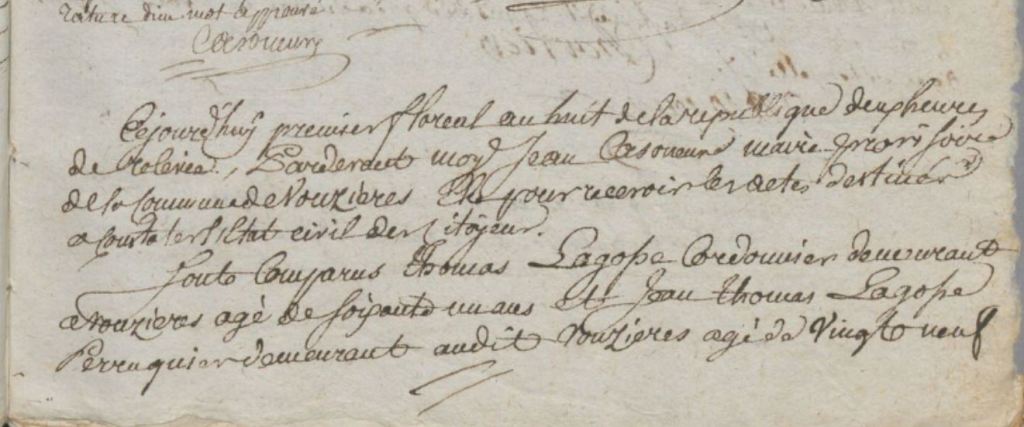 rature d'un mot approuvé
Cejourd'huy premier floreal an huit de la republique deux heures
de relevée, Pardevant moy Jean maire provisoire
de la Commune de Vouzieres Elu pour recevoir les actes destinés
a constater l'Etat civil des Citoyens.
Sont Comparus Thomas Lagosse Cordonnier demeurant
a vouzieres agé de soixante un ans Et Jean Thomas Lagosse
Perruquier demeurant audit Vouzieres agé de Vingt neuf